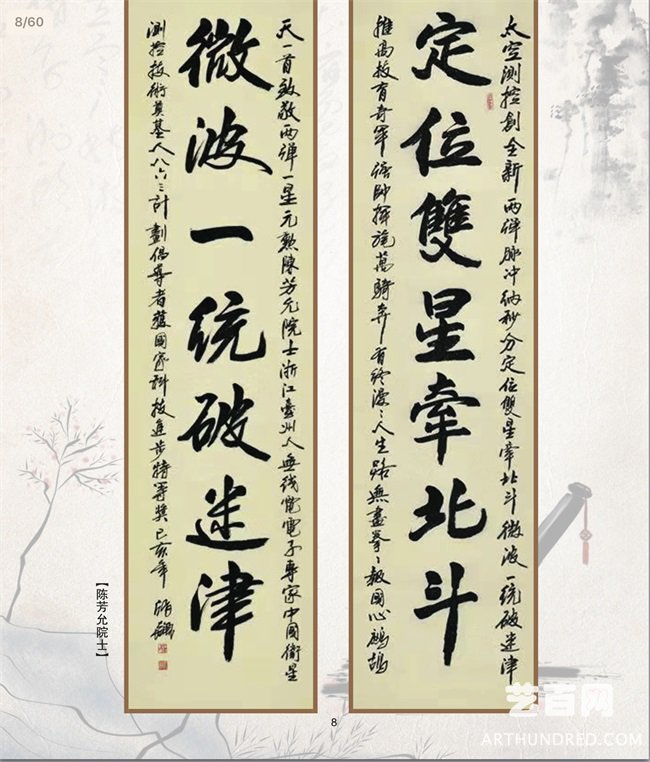 8/60
太空測控創全新兩彈脈冲納秒分定位雙星牽北斗微波一统破迷津
定位雙星牽北斗
推高技育奇軍帥揮旄萬騎奔有終漫〻人生路無盡拳〻報國心鷓鴣
天一首致敬两弹一星元勲陳芳允院士浙江臺州人無线電電子專家中國衛星
微波一统破迷津
測控技術奠基人八六三計劃倡導者獲國家科技進步特等獎己亥年
【陈芳允院士】
8
艺百网
ARTHUNDRED.COM